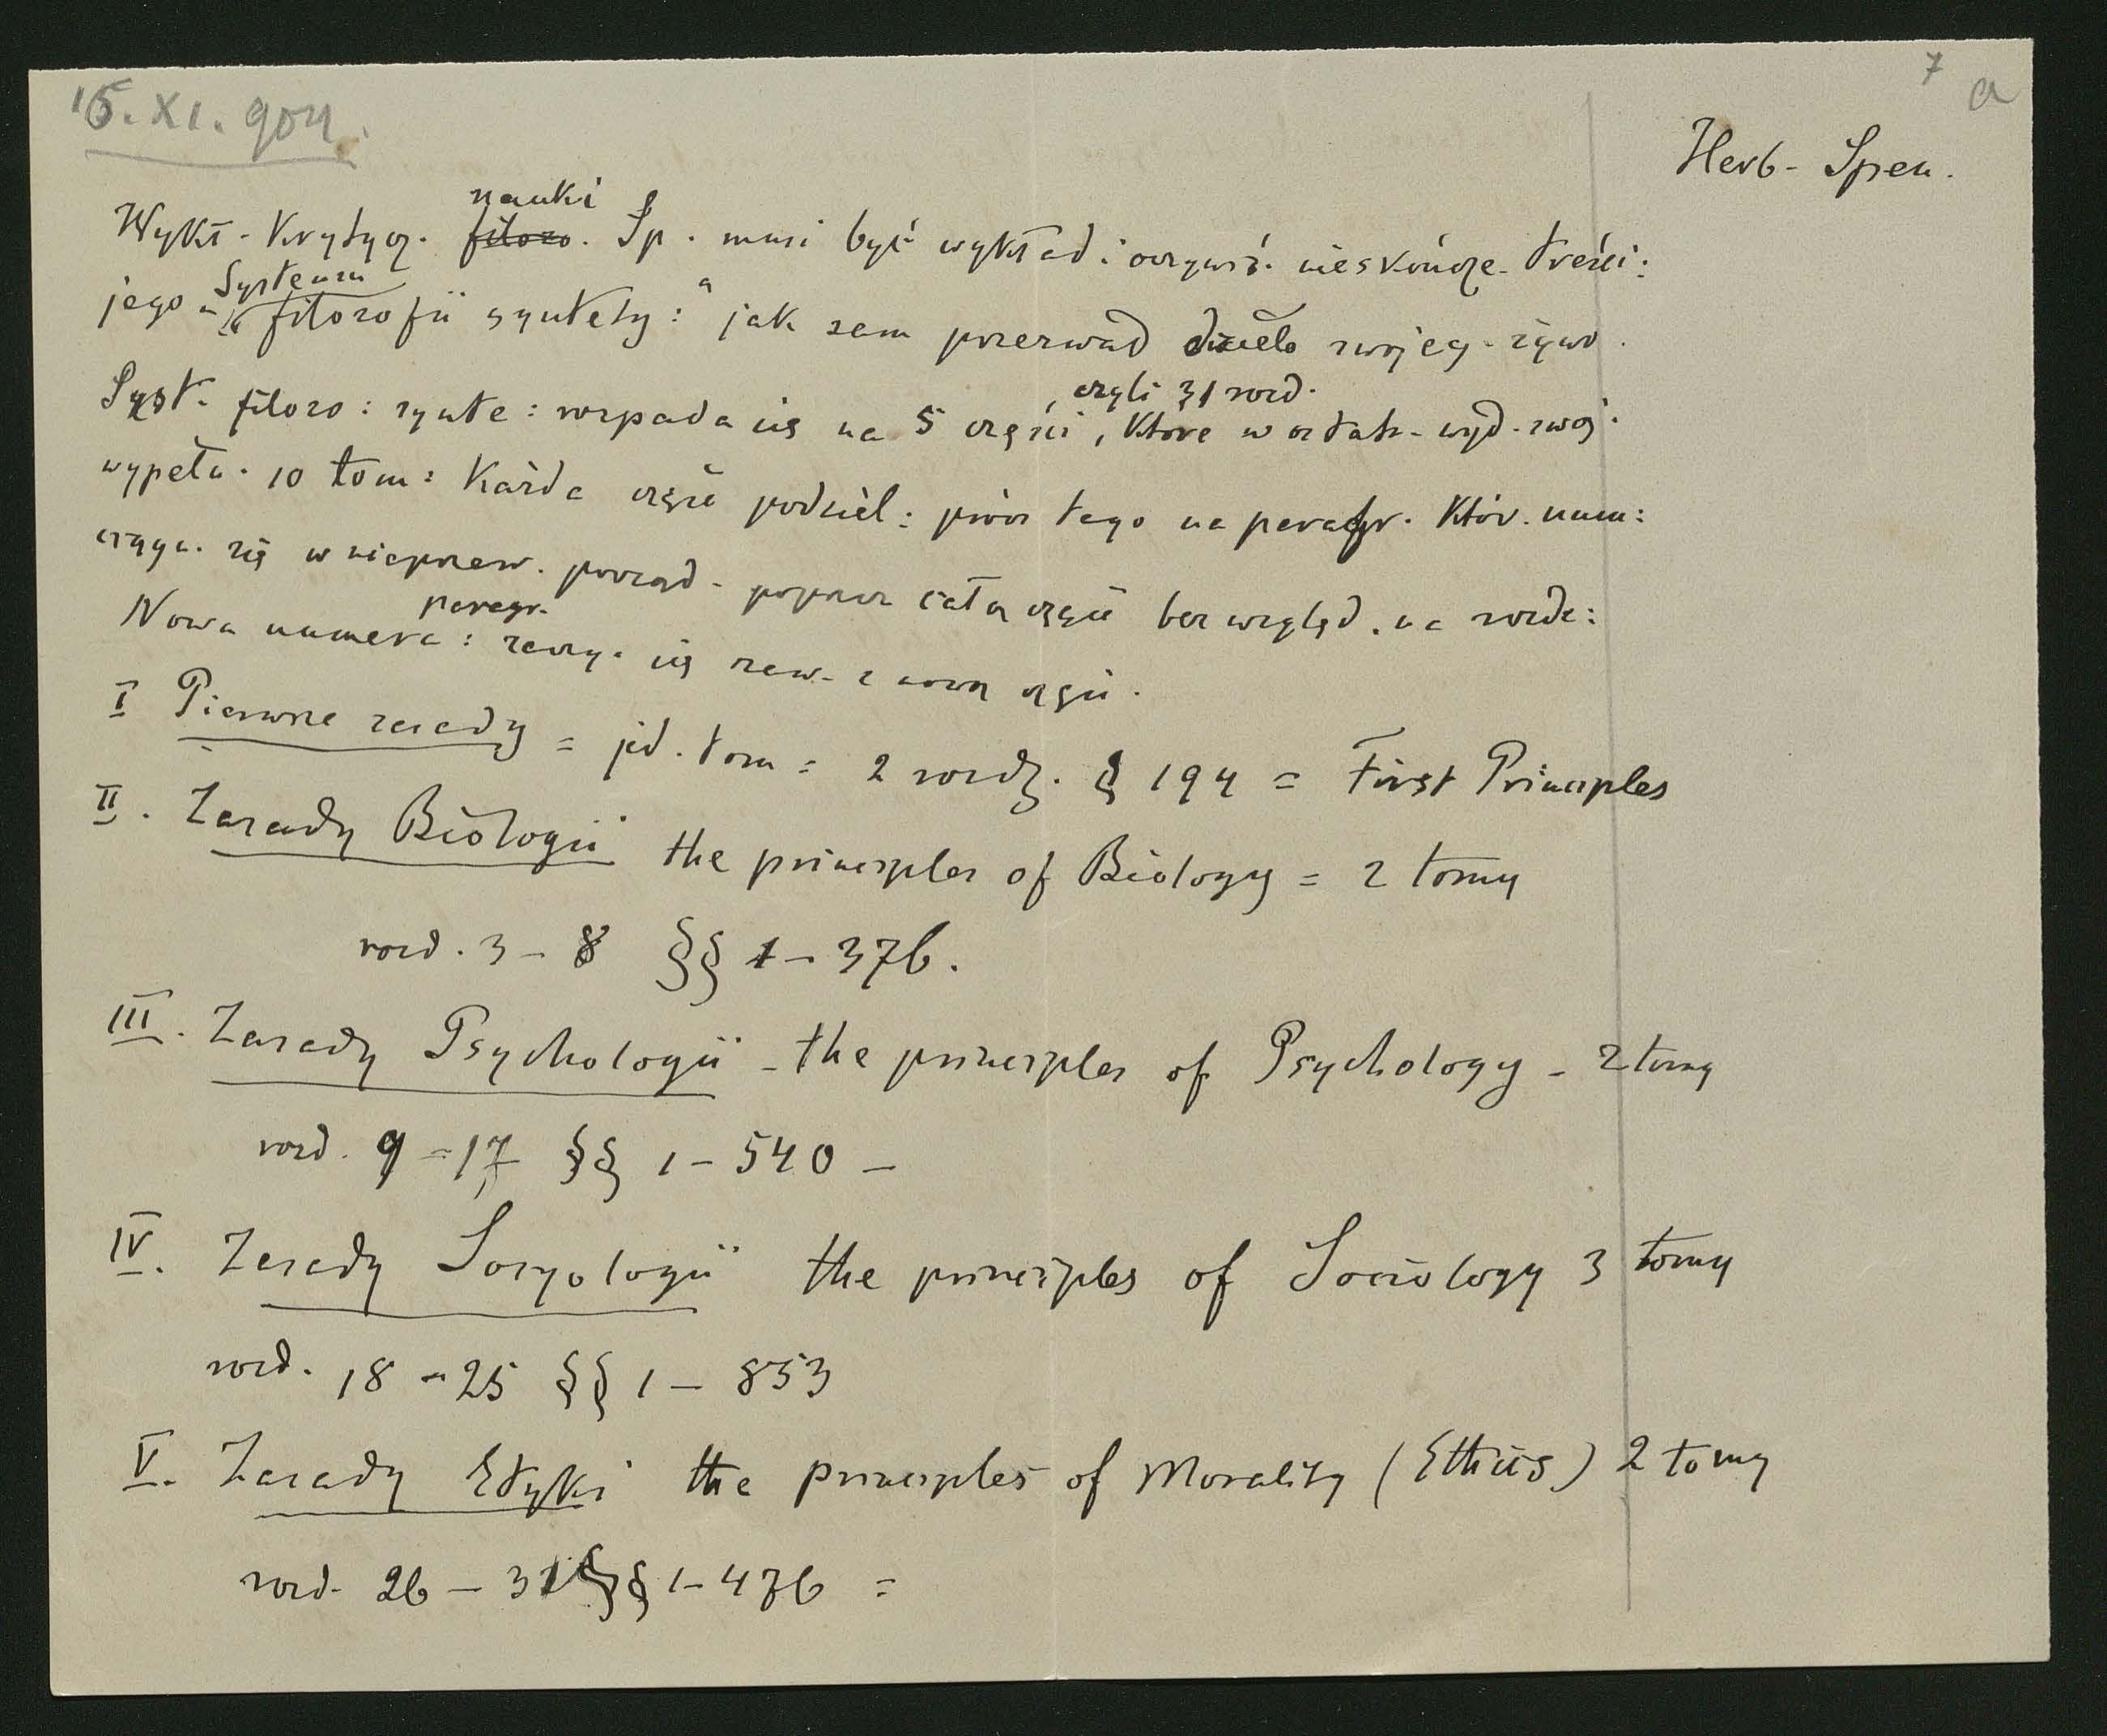 15. XI. 904.
7 a
Herb - Spen.
nauki
Wykł - Krytycz. filozo. Sp. musi być wykład: oczywiś. nieskończe - treści:
Systemu
jego „ filozofii syntety: “ jak sam przezwał dzieło swojeg - życio.
, czyli 31 rozd.
Syst. filozo: synte: rozpada się na 5 części, które w ostatn - wyd - swoj.
wypełn. 10 tom: Każda część podziel: prócz tego na paragr. Któr. num:
ciągn. się w nieprzerw. porząd - poprzez całą część bez względ. na rozdz:
paragr.
Nowa numera: zaczy. się zaw - z nową częśc.
I Pierwsze zasady = jed. tom = 2 rozdz. § 194 = First Principles
II. Zasady Biologii the principles of Biology = 2 tomy
rozd. 3 - 8 §§ 1 - 376.
III. Zasady Psychologii - the principles of Psychology - 2 tomy
rozd. 9 - 17 §§ 1 - 540 -
IV. Zasady Socyologii the principles of Sociology 3 tomy
rozd. 18 - 25 §§ 1 - 853
V. Zasady Etyki the principles of Morality (Ethics) 2 tomy
rozd - 26 - 31 §§ 1 - 476 =